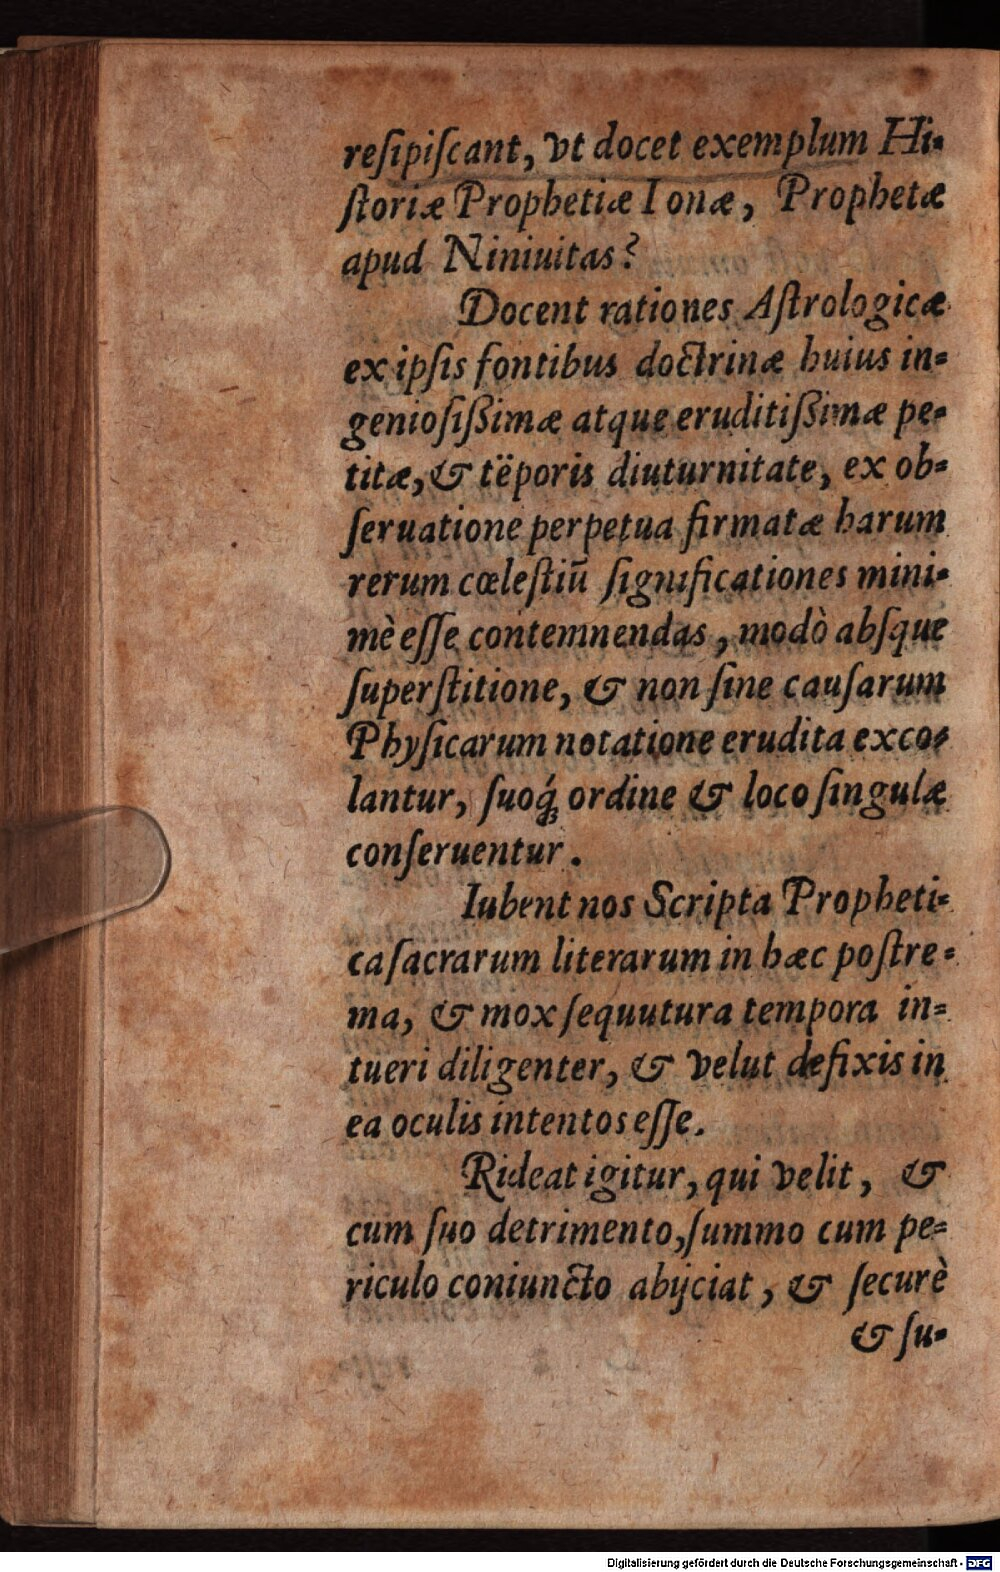 reſipiſcant, vt docet exemplum Hi-
ſtoriæ Prophetiæ Ionæ, Prophetæ
apud Niniuitas?
Docent rationes Aſtrologicæ
ex ipſis fontibus doctrinæ huius in-
genioſiſßimæ atque eruditiſßimæ pe-
titæ, & tëporis diuturnitate, ex ob-
ſeruatione perpetua firmatæ harum
rerum cœleſtiū ſignificationes mini-
mè eſſe contemnendas, modò abſque
ſuperſtitione, & non ſine cauſarum
Phyſicarum notatione erudita exco-
lantur, ſuoq́; ordine & loco ſingulæ
conſeruentur.
Iubent nos Scripta Propheti-
ca ſacrarum literarum in hæc poſtre-
ma, & mox ſequutura tempora in-
tueri diligenter, & velut defixis in
ea oculis intentos eſſe.
Rideat igitur, qui velit, &
cum ſuo detrimento, ſummo cum pe-
riculo coniuncto abijciat, & ſecurè
& ſu-
Digitalisierung gefördert durch die Deutsche Forschungsgemeinschaft - DFG